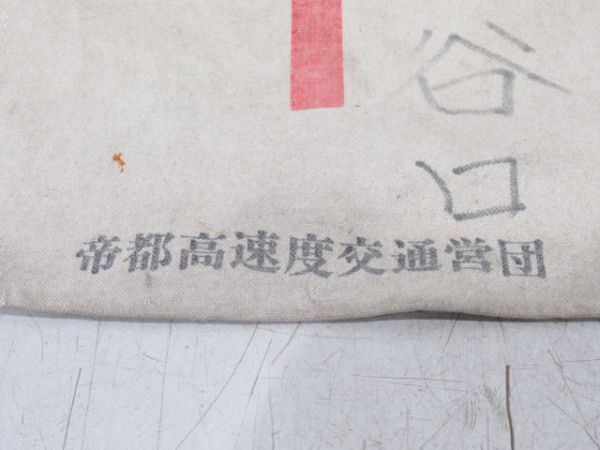 谷口
帝都高速度交通営団